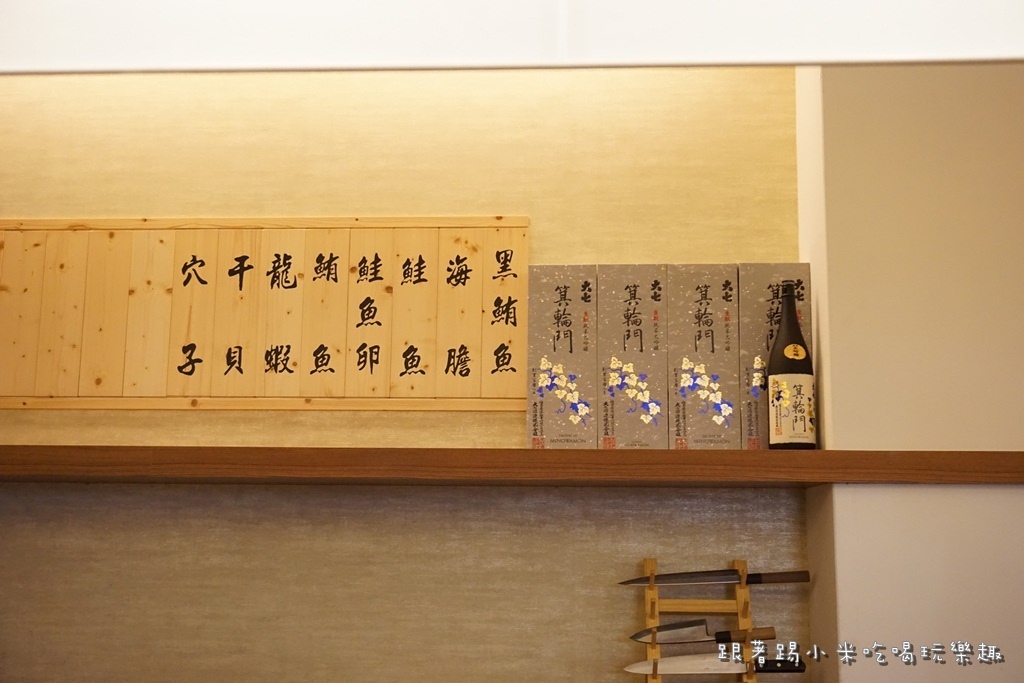 黑鮪魚
海膽
鮭魚
鮭魚卵
鮪魚
龍蝦
干貝
穴子
大七
箕輪門
MINOWAMON
大七
箕輪門
MINOWAMON
大七
箕輪門
MINOWAMON
大七
箕輪門
箕輪門
跟著踢小米吃喝玩樂趣